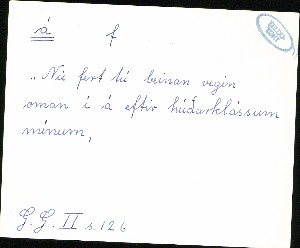 á f
„Nú fert tú beinan vegin
oman í á eftir húðarklássum
mínum,
G.G. II s. 126